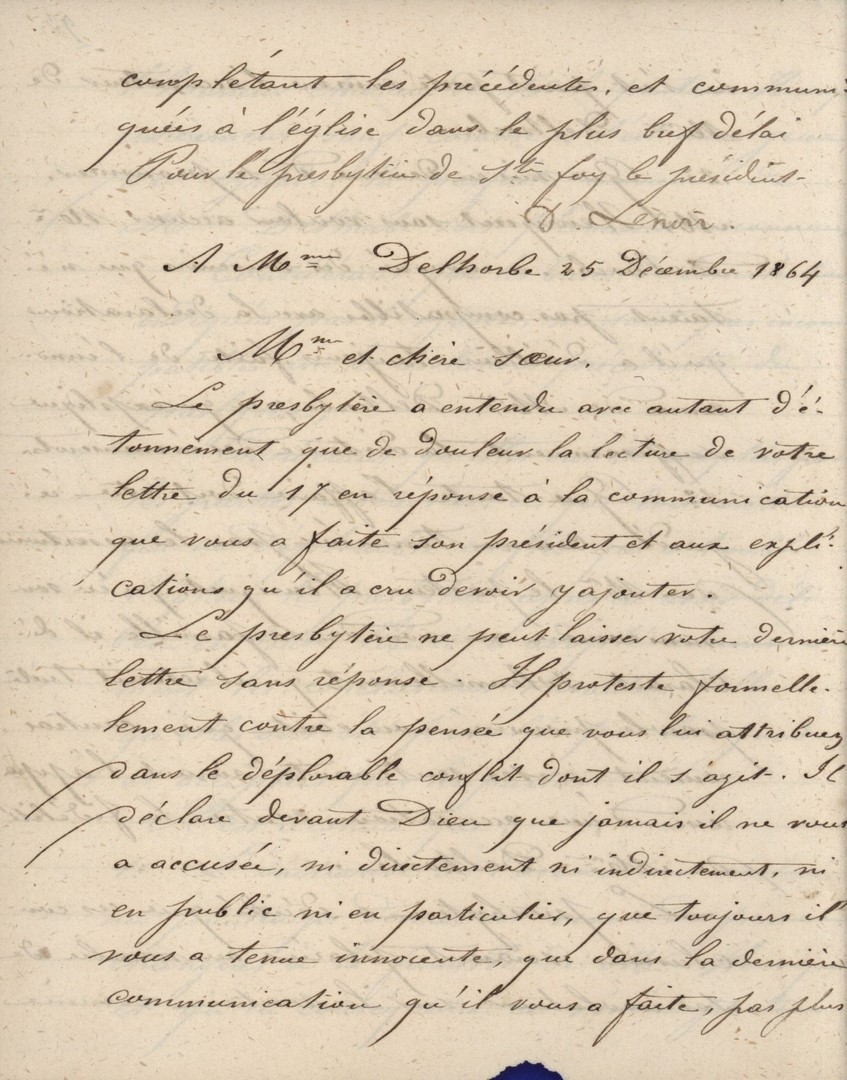 complétant les précédentes, et communi-
quées à l'église dans le plus bref délai
Pour le presbytère de Ste foy le président
D. Lenoir.
A Mme Delhorbe 25 Décembre 1864
Mme et chère sœur.
Le presbytère a entendu avec autant d'é-
tonnement que de douleur la lecture de votre
lettre du 17 en réponse à la communication
que vous a faite son président et aux expli-
cations qu'il a cru devoir y ajouter.
Le presbytère ne peut laisser votre dernière
lettre sans réponse. Il proteste formelle-
lement contre la pensée que vous lui attribuez
dans le déplorable conflit dont il s'agit. Il
déclare devant Dieu que jamais il ne vous
a accusée, ni directement ni indirectement, ni
en public ni en particulier, que toujours il
vous a tenue innocente, que dans la dernière
communication qu'il vous a faite, pas plus